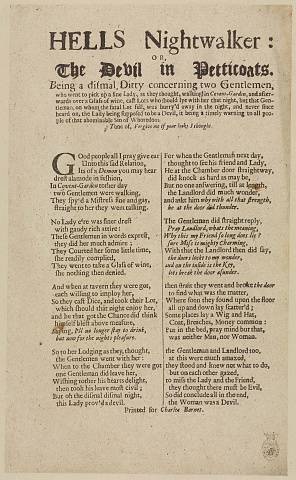 HELLS Nightwalker:
OR,
The Devil in Petticoats.
Being a dismal Ditty concerning two Gentlemen,
who went to pick up a fine Lady, as they thought, walking in Covent-Garden, and after-
wards over a Glass of wine, cast Lots who should lye with her that night, but that Gen-
tleman, on whom the fatal Lot fell, was hurry'd away in the night, and never since
heard on, the Lady being supposed to be a Devil, it being a timely warning to all peo-
ple of that abominable Sin of Whoredom.
Tune of, Forgive me if your looks I thought.
GOod people all I pray give ear
Unto this sad Relation,
It's of a Demon you may hear
drest alamode in fashion,
In Covent-Garden tother day
two Gentlemen were walking,
They spy'd a Mistress fine and gay,
straight to her they went talking.
No Lady e're was finer drest
with gaudy rich attire:
These Gentlemen in words exprest,
they did her much admire;
They Courted her some little time,
she readily complied,
They went to take a Glass of wine,
she nothing then denied.
And when at tavern they were got,
each willing to imploy her,
So they cast Dice, and took their Lot,
which should that night enjoy her,
and he that got the Chance did think
himself blest above measure,
saying, I'll no longer stay to drink,
but now for the nights pleasure.
So to her Lodging as they, thought,
the Gentlemen went with her:
When to the Chamber they were got
one Gentleman did leave her,
Wishing tother his hearts delight,
then took his leave most civil;
But oh the dismal dismal night,
this Lady prov'd a devil.
For when the Gentleman next day,
thought to see his friend and Lady,
He at the Chamber door straightway,
did knock as hard as may be,
But no one answering, till at length,
the Landlord did much wonder,
and askt him why with all that strength,
he at the door did thunder.
The Gentleman did straight reply,
Pray Landlord, whats the meaning,
Why lies my Friend so long does ly?
sure Miss is mighty Charming,
With that the Landlord then did say,
the doors looks to me wonder,
and on the inside is the Key,
let's break the door asunder.
then strait they went and broke the door
to find what was the matter,
Where soon they found upon the floor
all up and down lay scatter'd;
Some places lay a Wig and Hat,
Coat, Breeches, Money common:
But in the bed, pray mind but that,
was neither Man, nor Woman.
the Gentleman and Landlord too,
at this were much amazed,
they stood and knew not what to do,
but on each other gazed,
to miss the Lady and the Friend,
they thought there must be Evil,
So did conclude all in the end,
the Woman was a Devil.
Printed for Charles Barnet.